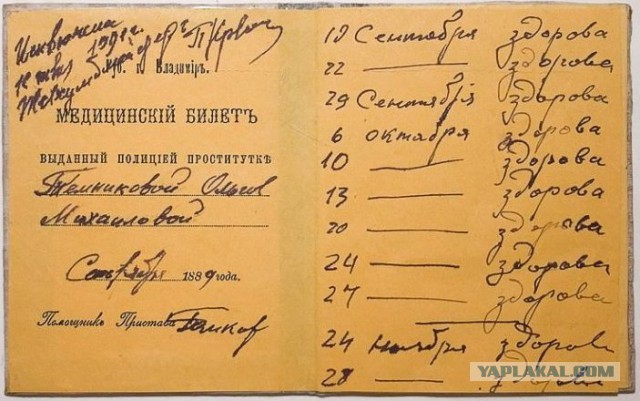 1891 г.
Губ. г. Владиміръ.
МЕДИЦИНСКІЙ БИЛЕТЪ
ВЫДАННЫЙ ПОЛИЦІЕЙ ПРОСТИТУТКѢ
Темниковой Ольгѣ
Михайловой
Сентября 1889 года.
Помощникъ Пристава
19 Сентября здорова
22 — здорова
29 Сентября здорова
6 октября здорова
10 — здорова
13 — здорова
20 — здорова
24 — здорова
27 — здорова
24 ноября здорова
28 — здорова
YAPLAKAL.COM